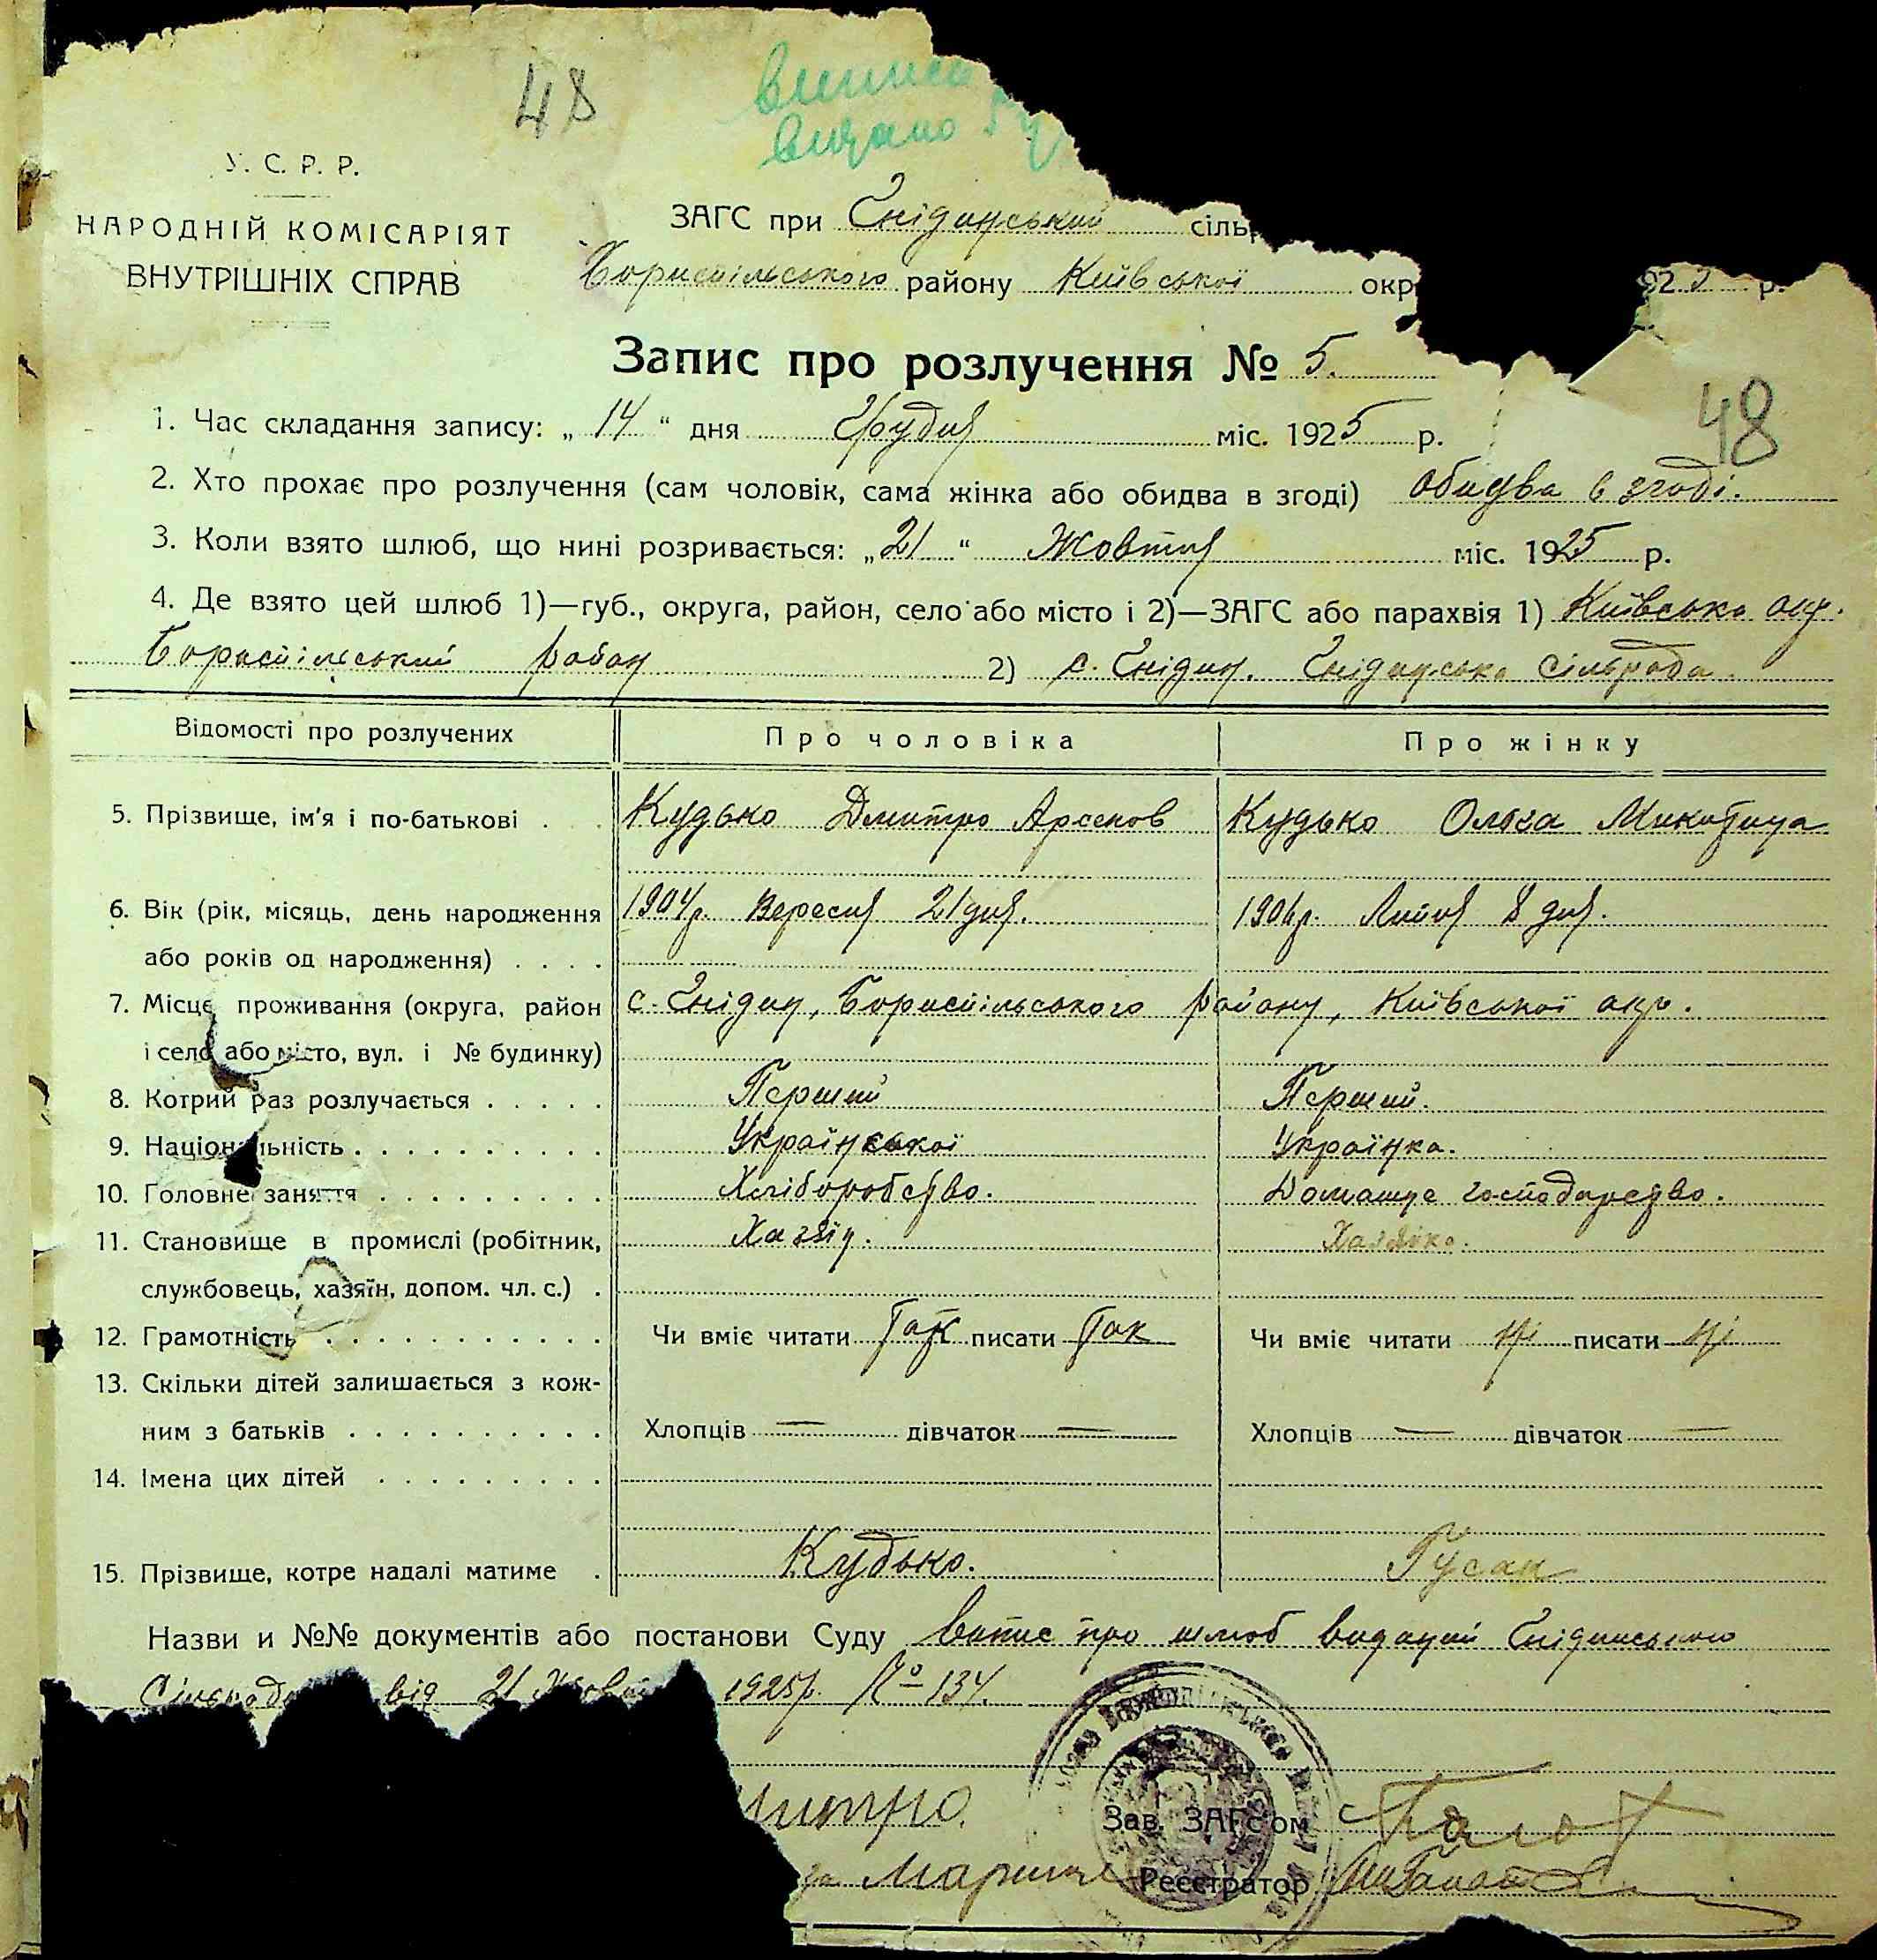 48
видано
У. С. Р. Р.
НАРОДНІЙ КОМІСАРІЯТ
ВНУТРІШНІХ СПРАВ
ЗАГС при Гнідинський сіль
Бориспільського району Київської окр 925 р.
Запис про розлучення № 5.
48
1. Час складання запису: „ 14 “ дня Грудня міс. 1925 р.
2. Хто прохає про розлучення (сам чоловік, сама жінка або обидва в згоді) обидва в згоді.
3. Коли взято шлюб, що нині розривається: „21 “ Жовтня міс. 1925 р.
4. Де взято цей шлюб 1)—губ., округа, район, село або місто і 2)—ЗАГС або парахвія 1) Київська окр.
Бориспільський район 2) с. Гнідин. Гнідинська сільрада.
Відомості про розлучених Про чоловіка Про жінку
5. Прізвище, ім'я і по-батькові . . Кудько Дмитро Арсенов Кудько Ольга Микитина
6. Вік (рік, місяць, день народження 1904р. Вересня 21 дня. 1906р. Липня 8 дня.
або років од народження) . . . .
7. Місце проживання (округа, район с. Гнідин, Бориспільського району, Київської окр.
і село або місто, вул. і № будинку)
8. Котрий раз розлучається . . . . . Перший Перший.
9. Національність . . . . . . . . . . Української Українка.
10. Головне заняття . . . . . . . . . Хліборобство. Домашнє господарство.
11. Становище в промислі (робітник, Хазяїн. Хазяйка.
службовець, хазяїн, допом. чл. с.) .
12. Грамотність . . . . . . . . . . . Чи вміє читати Так писати Так Чи вміє читати Ні писати Ні
13. Скільки дітей залишається з кож-
ним з батьків . . . . . . . . . . Хлопців — дівчаток — Хлопців — дівчаток —
14. Імена цих дітей . . . . . . . . .
15. Прізвище, котре надалі матиме . Кудько. Гусак
Назви и №№ документів або постанови Суду Витис про шлюб виданий Гнідинського
від 21 1925р. № 134.
митро.
Зав. ЗАГС'ом
Реєстратор